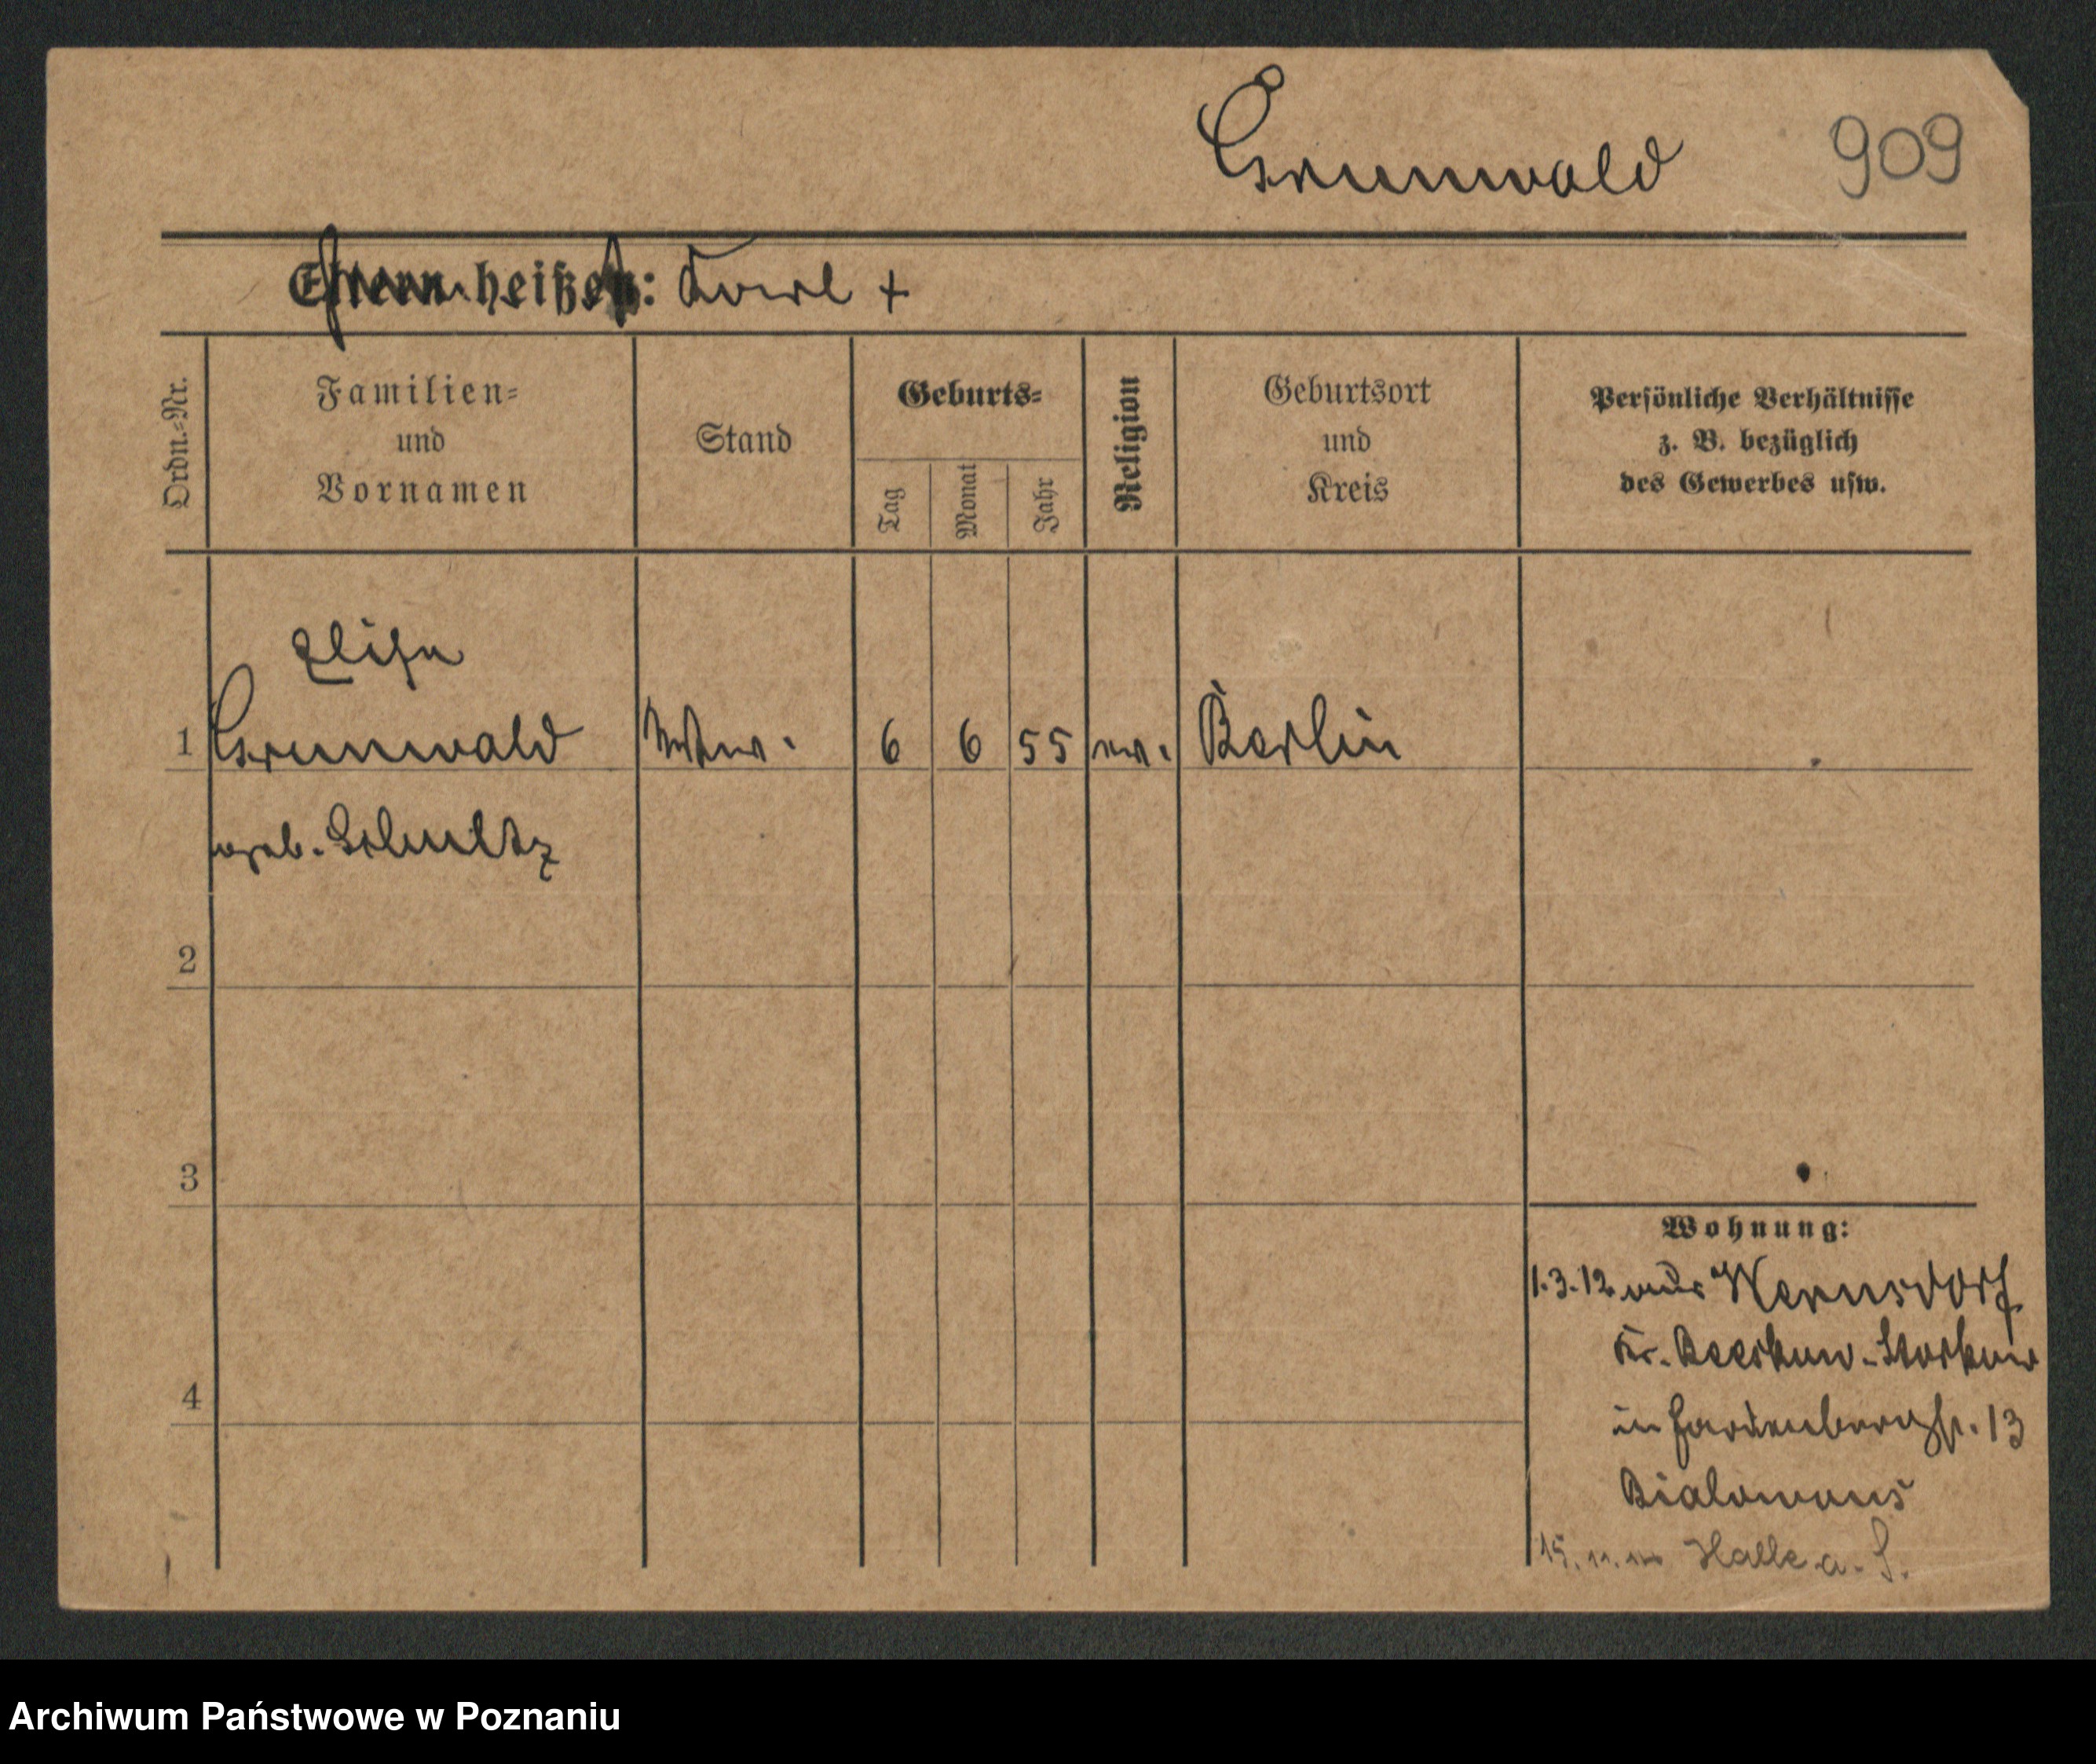 Grunwald 909
Eltern heißen: Karl +
Ordn.-Nr.
Familien-
und
Vornamen
Stand
Geburts-
Tag
Monat
Jahr
Religion
Geburtsort
und
Kreis
Persönliche Verhältnisse
z. B. bezüglich
des Gewerbes usw.
Elise
1 Grunwald Wtwe. 6 6 55 ev. Berlin
geb. Schultz
2
3
Wohnung:
1.3.12 aus Wernsdorf
Kr. Beeskow-Storkow
4
in Hardenbergstr. 13
Halle a. S.
Archiwum Państwowe w Poznaniu